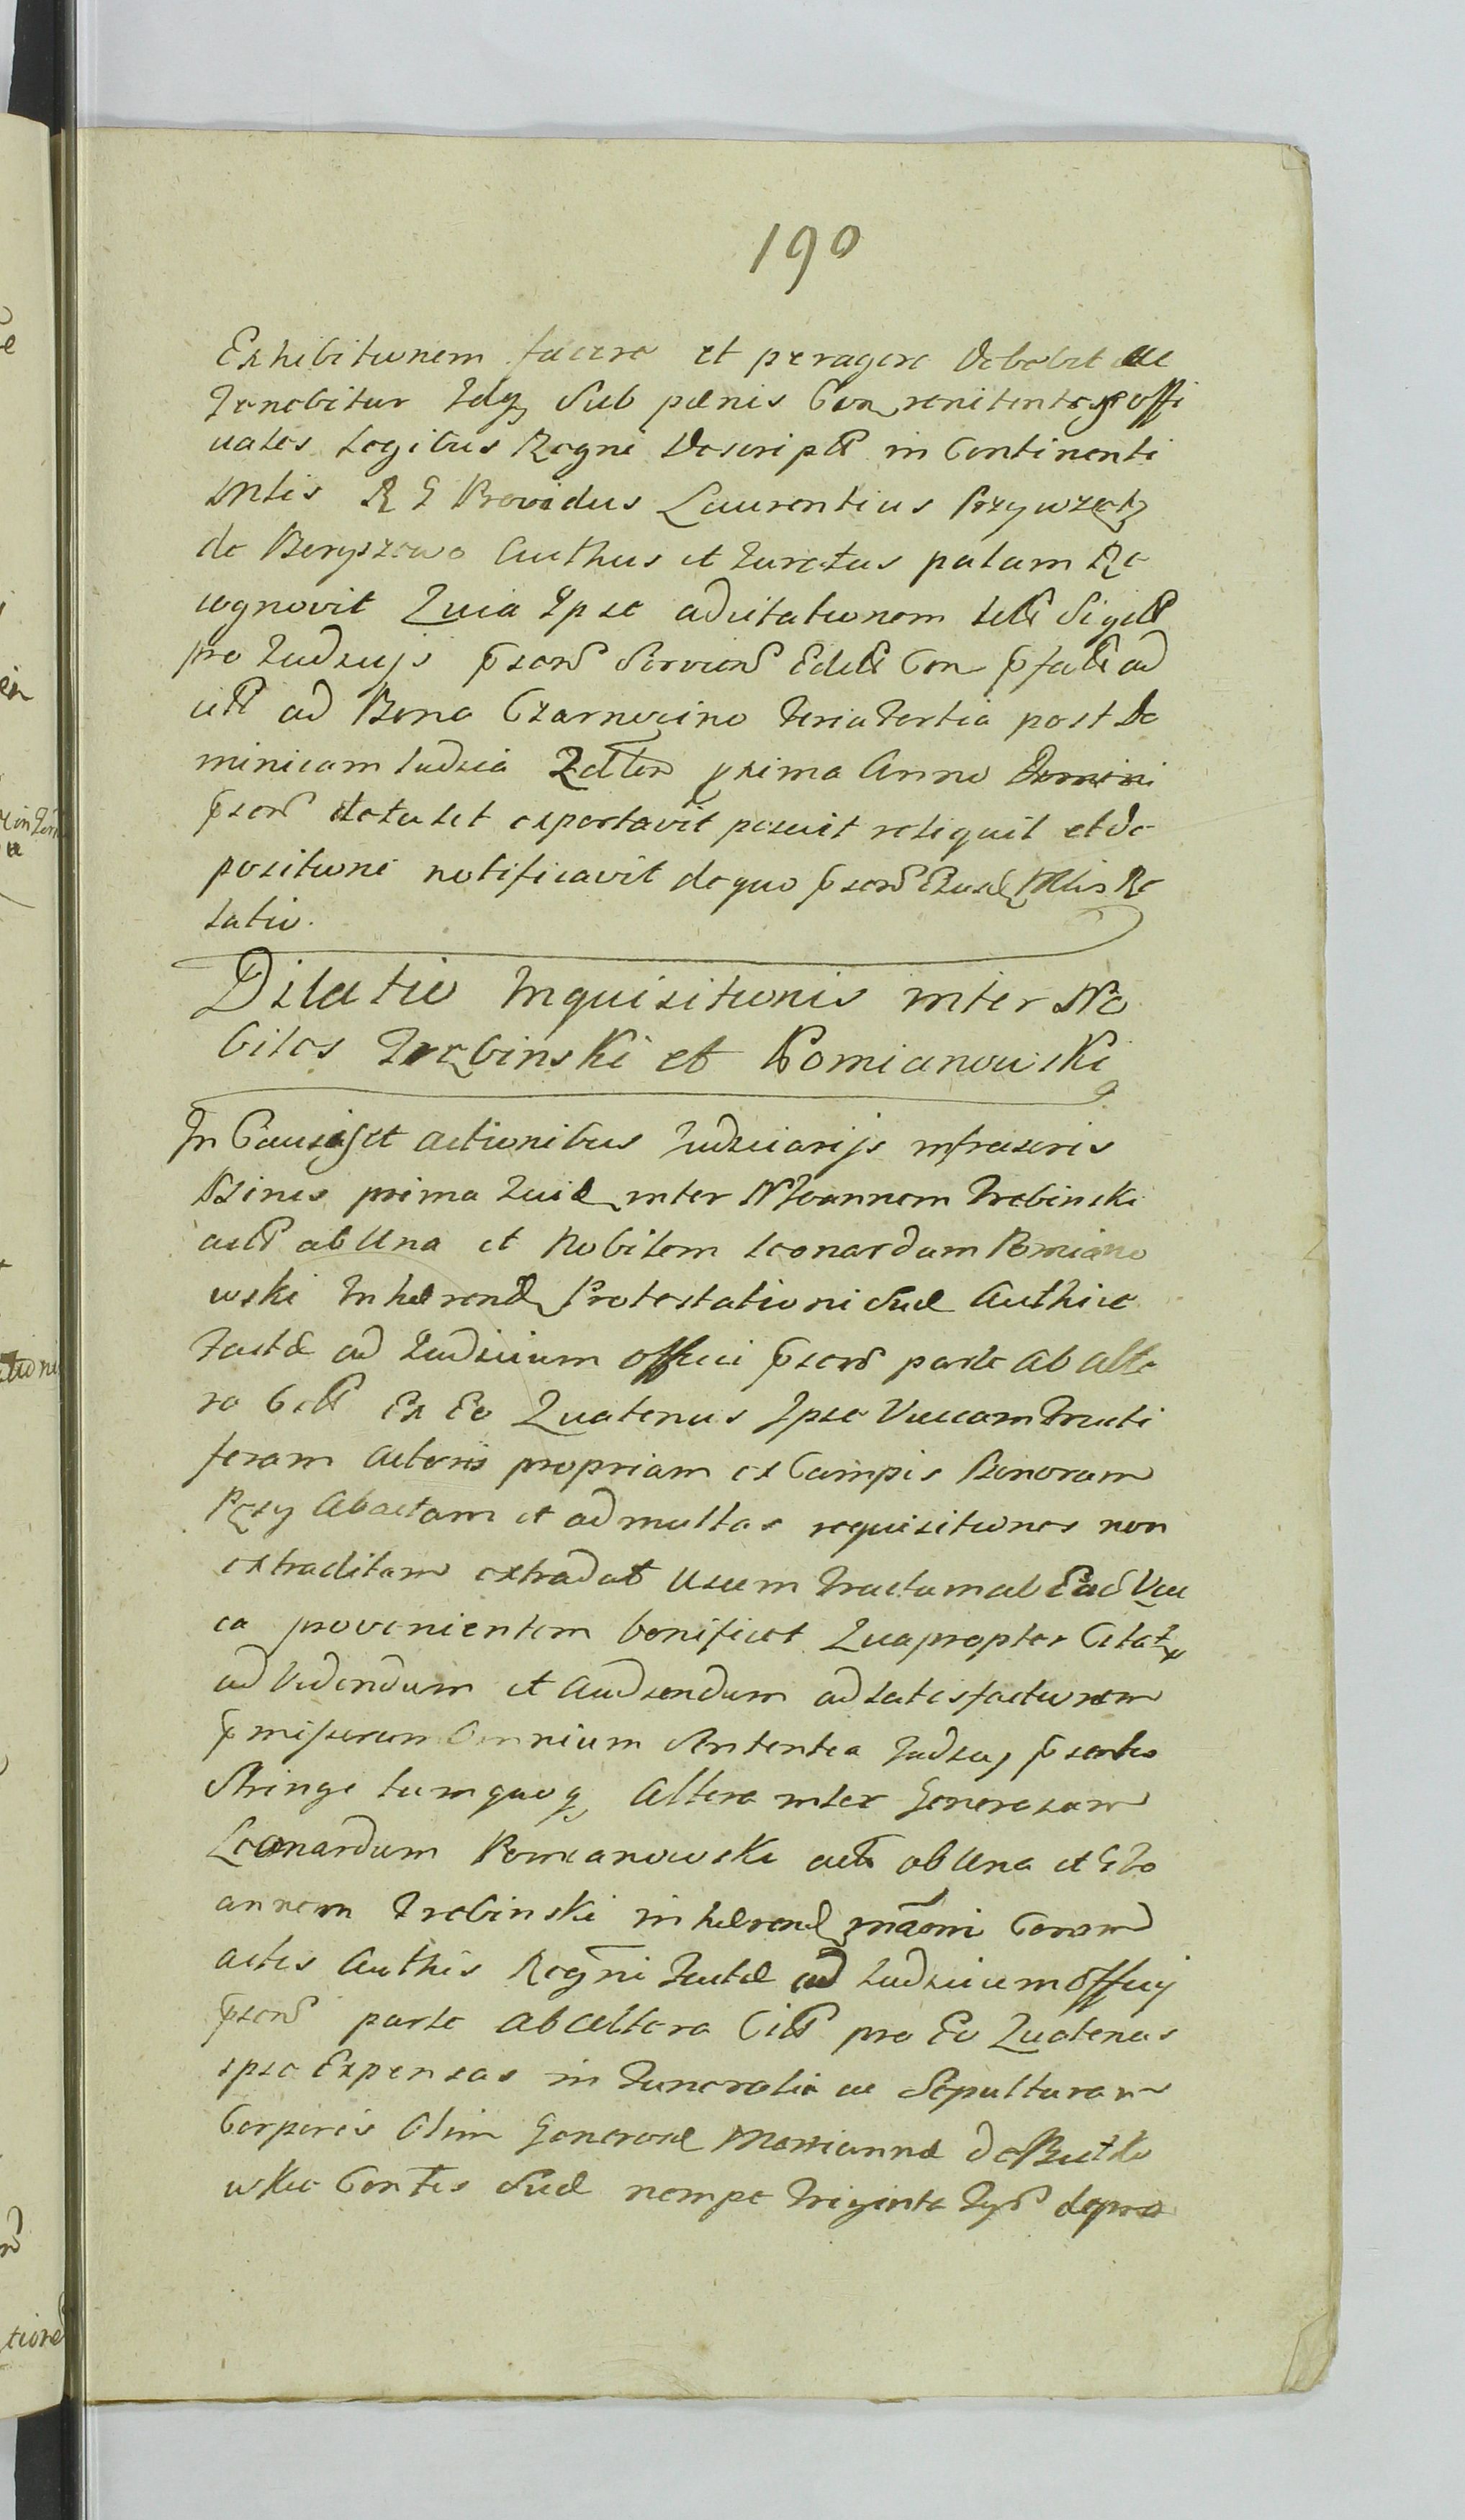 190
Exhibitionem facere et peragere debebit ac
tenebitur Idq sub paenis Con renitentes offi
ciales Legibus Regni Descriptis in Continenti
Mtis R G Providus Laurentius Przywzetz
de Beryszewo Authus et Juratus palam Re
cognovit Quia Ipse ad citationem Sigill
pro Judicijs psent Servient Con ad
cit ad Bona Czarnocino feria tertia post Do
minicam Judica prima Anno Domini
psent exportavit posuit reliquit et de
positione notificavit de quo psens Mlis Re
latio.
Dilatio Inquisitionis inter No
biles Trebinski et Pomianowski
In Causis et actionibus Judiciarijs infrascris
prima quid inter N Joannem Trebinski
act ab Una et Nobilem Leonardum Pomiano
wski Inhaerend Protestationi suae Authice
factae ad Judicium officii psens parte ab alte
ra Cit Ex Eo Quatenus Ipse Vaccam fructi
feram Actoris propriam ex Campis Bonorum
Abactam et ad multas requisitiones non
extraditam extradat Usum fructum ab Ead Vac
ca provenientem bonificet Quapropter Citat
ad Videndum et Audiendum ad satisfactionem
pmissorum Omnium Sententia Judicij psentis
Stringi tum quoq Altera inter Generosum
Leonardum Pomianowski act ab Una et G Jo
annem Trebinski inhaerend mãoni Coram
actis Authis Regni factae ad Judicium Officij
psens parte ab altera Cit pro Eo Quatenus
ipse Expensas in funeralia ac Sepulturam
Corporis Olim Generosae Mariannae de Rutko
wskie Contis suae nempe triginta Tyn depro